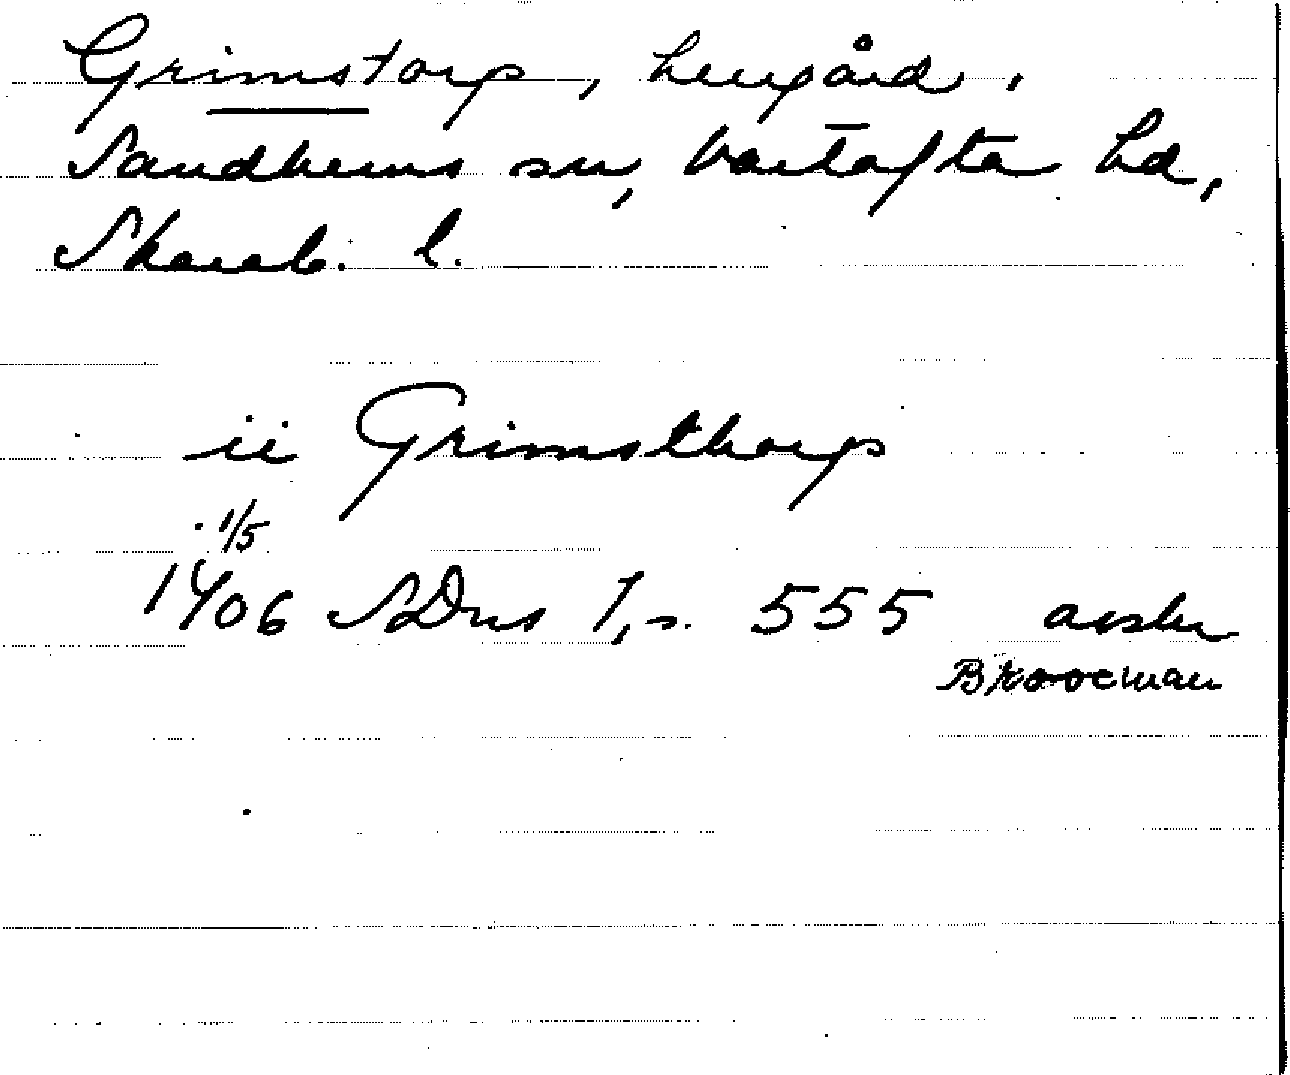 Grimstorp, herrgård,
Sandhems sn, Vartofta hd,
Skarab. l.
ii Grimsthorp
1/5
1406 SDns 1, s. 555 avskr
Broocman